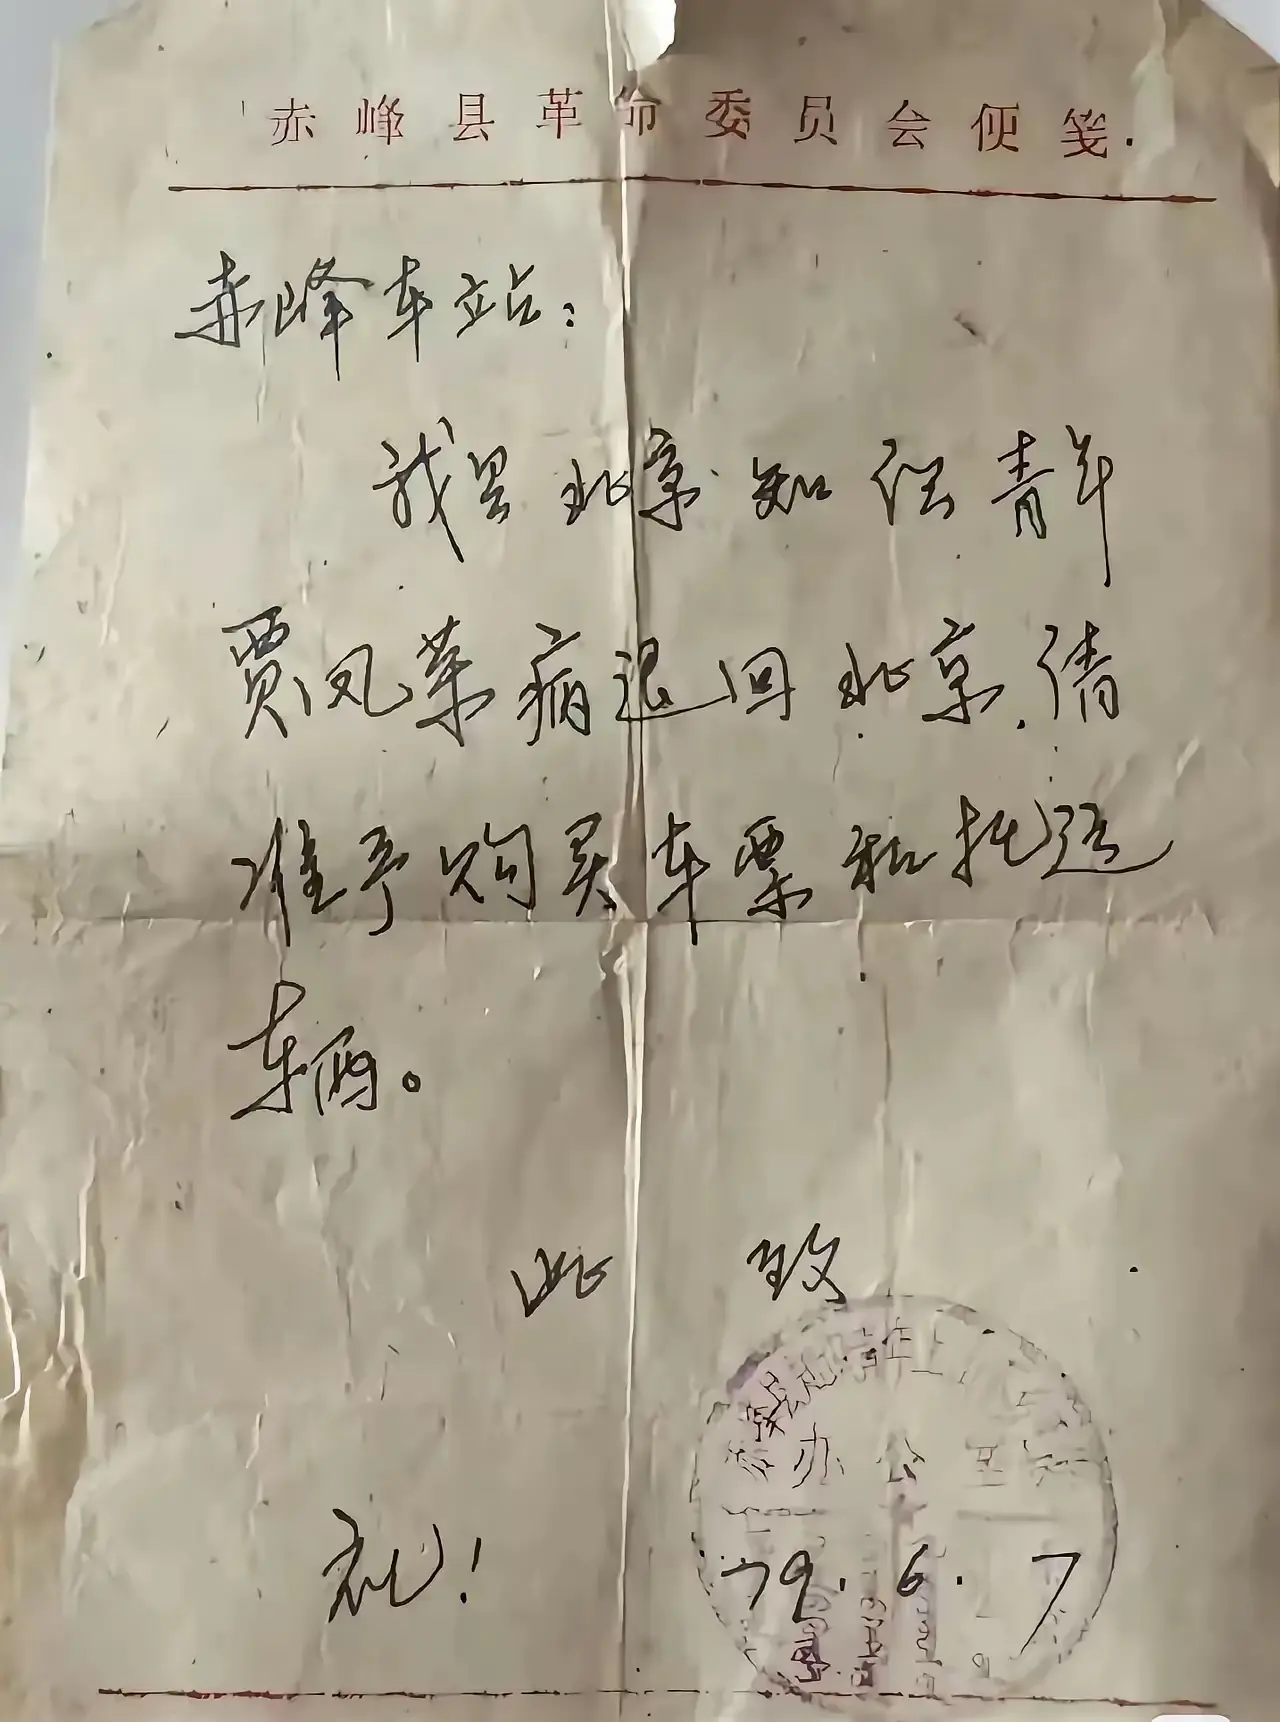 赤峰县革命委员会便笺.
赤峰车站：
我县北京知识青年
贾凤荣病退回北京.请
准予购买车票和托运
车辆。
此 致
办公室
礼！
79.6.7